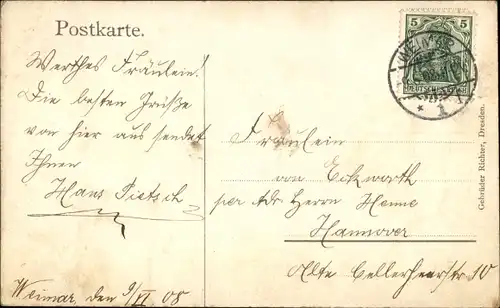 Postkarte.
Werthes Fräulein!
Die besten Grüße
von hier aus sendet
Ihnen
Hans Pietsch
Weimar, den 9/VI 08
5 5
DEUTSCHES REICH
1
Fräulein
von Eckwarth
per Adr Herrn Henne
Hannover
Alte Cellerheerstr 10
Gebrüder Richter, Dresden.